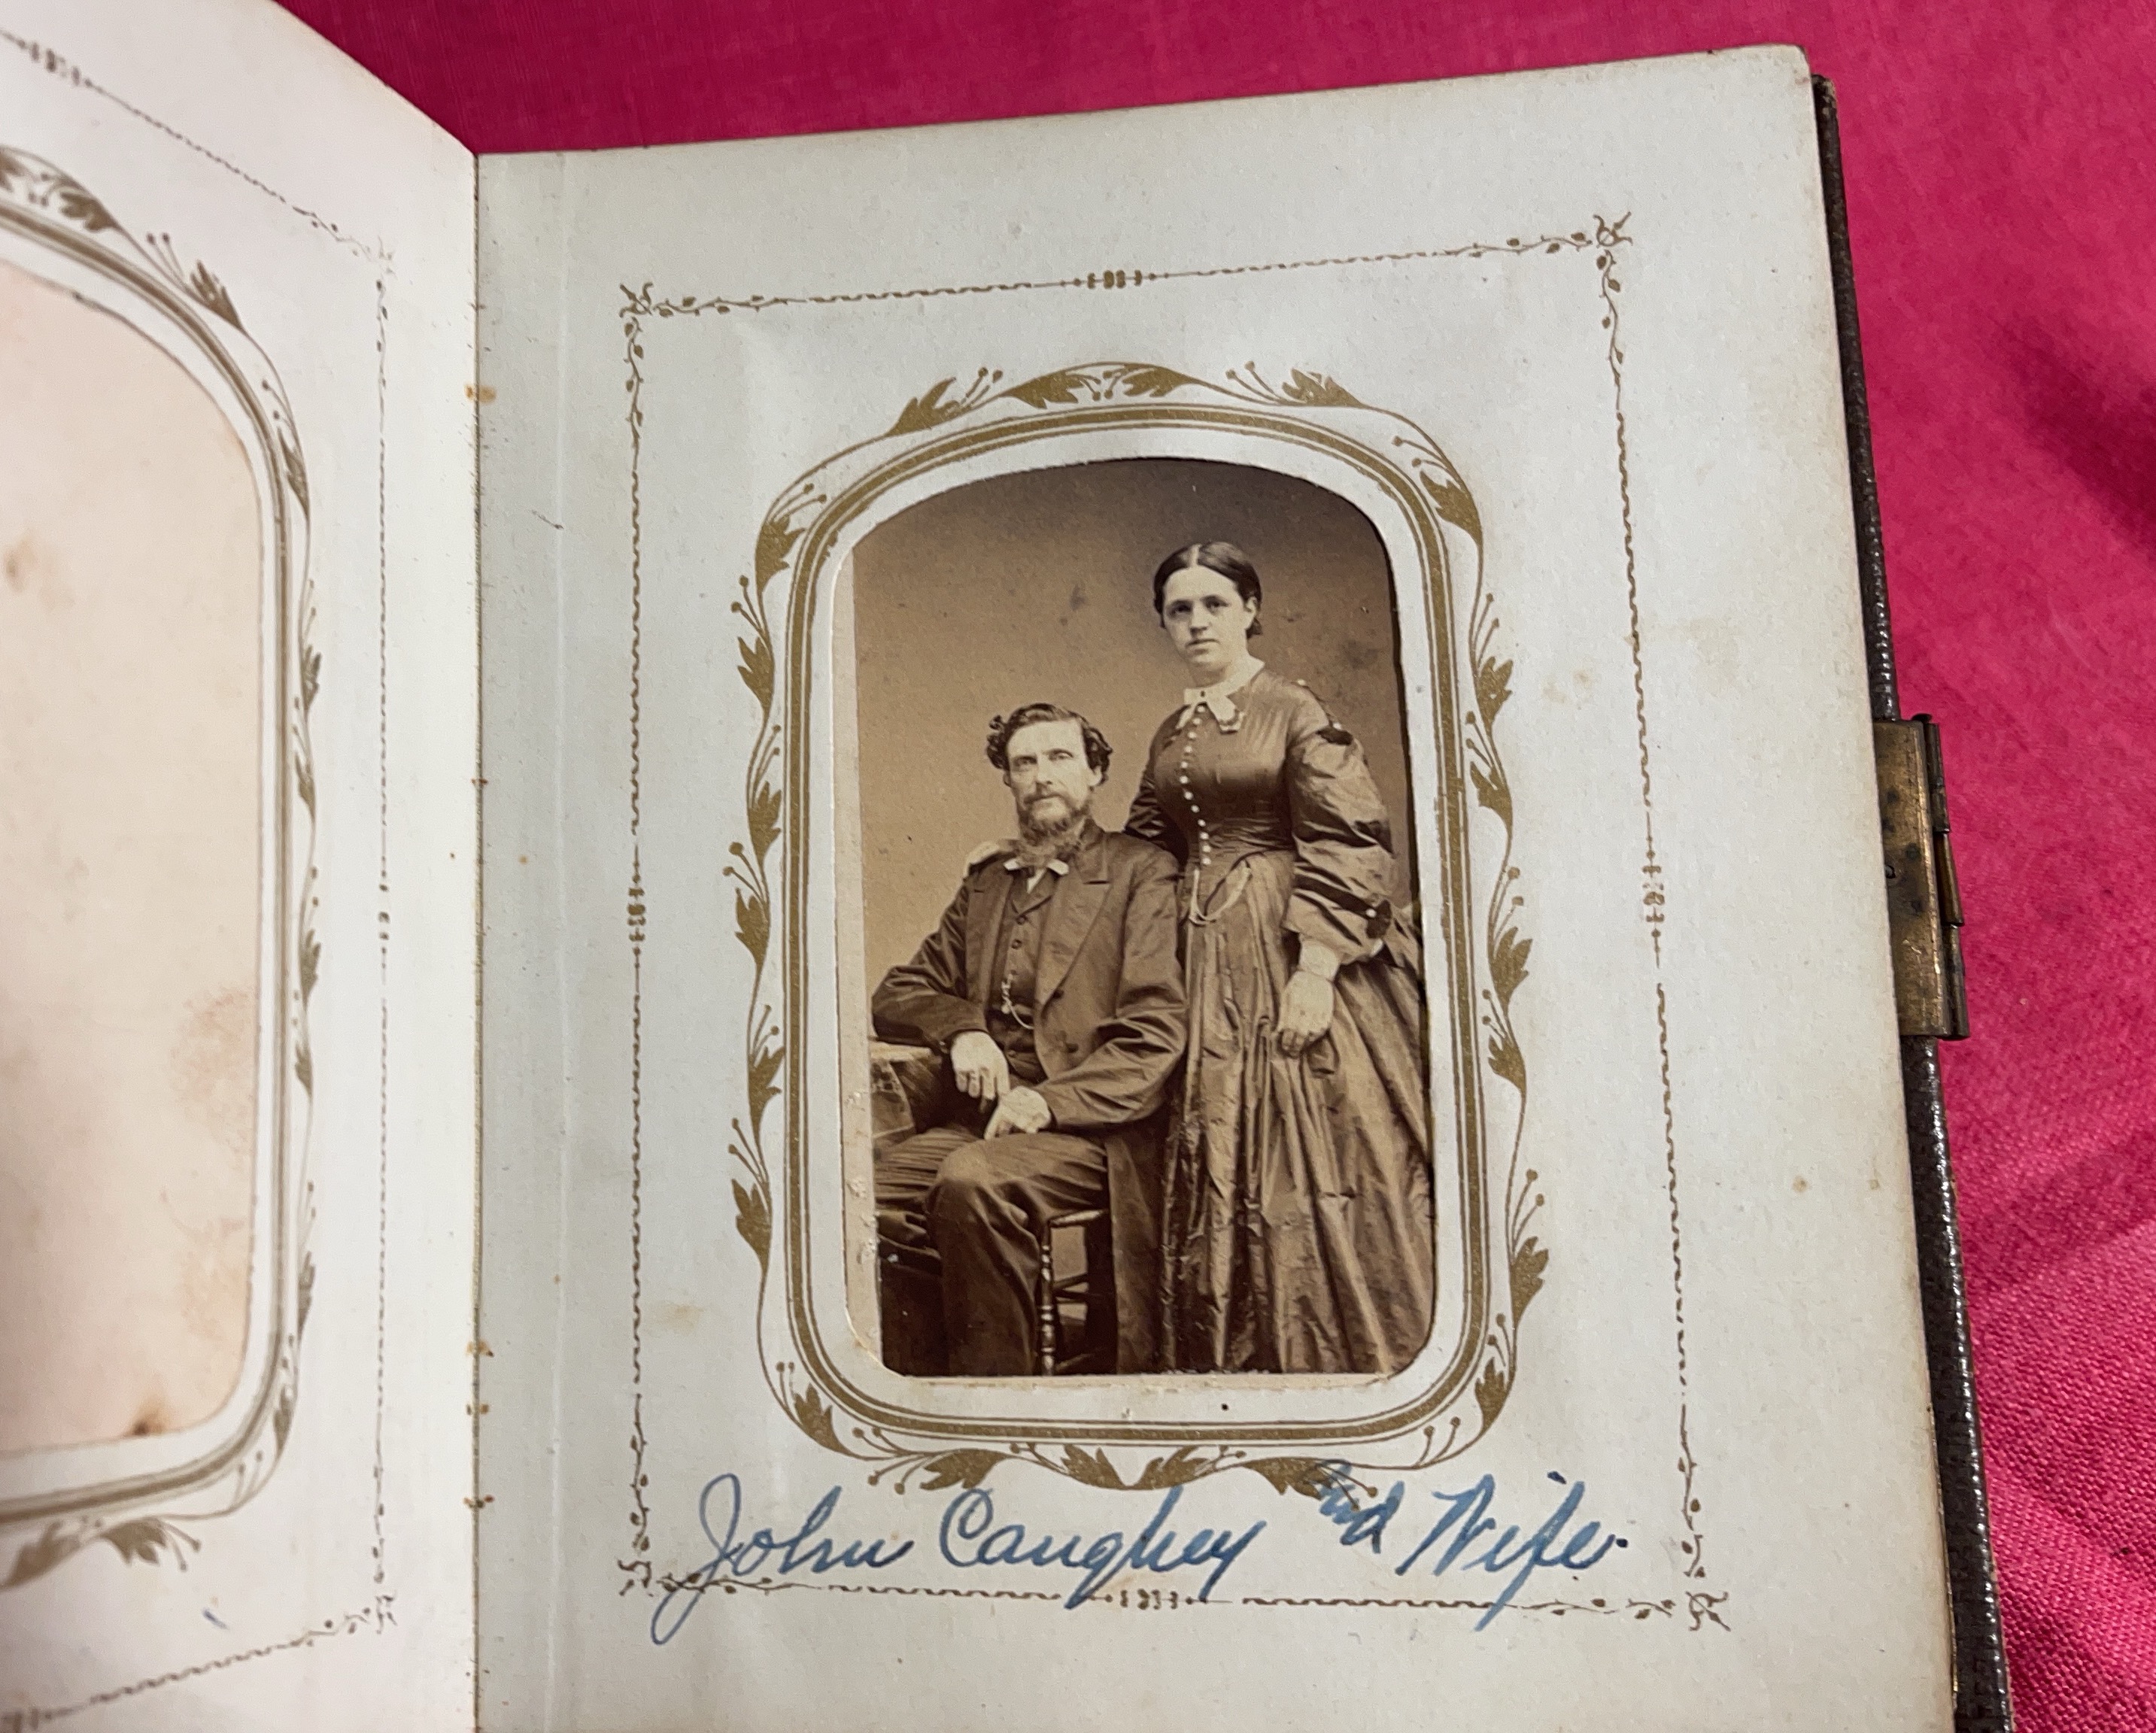 John Caughey and Wife.